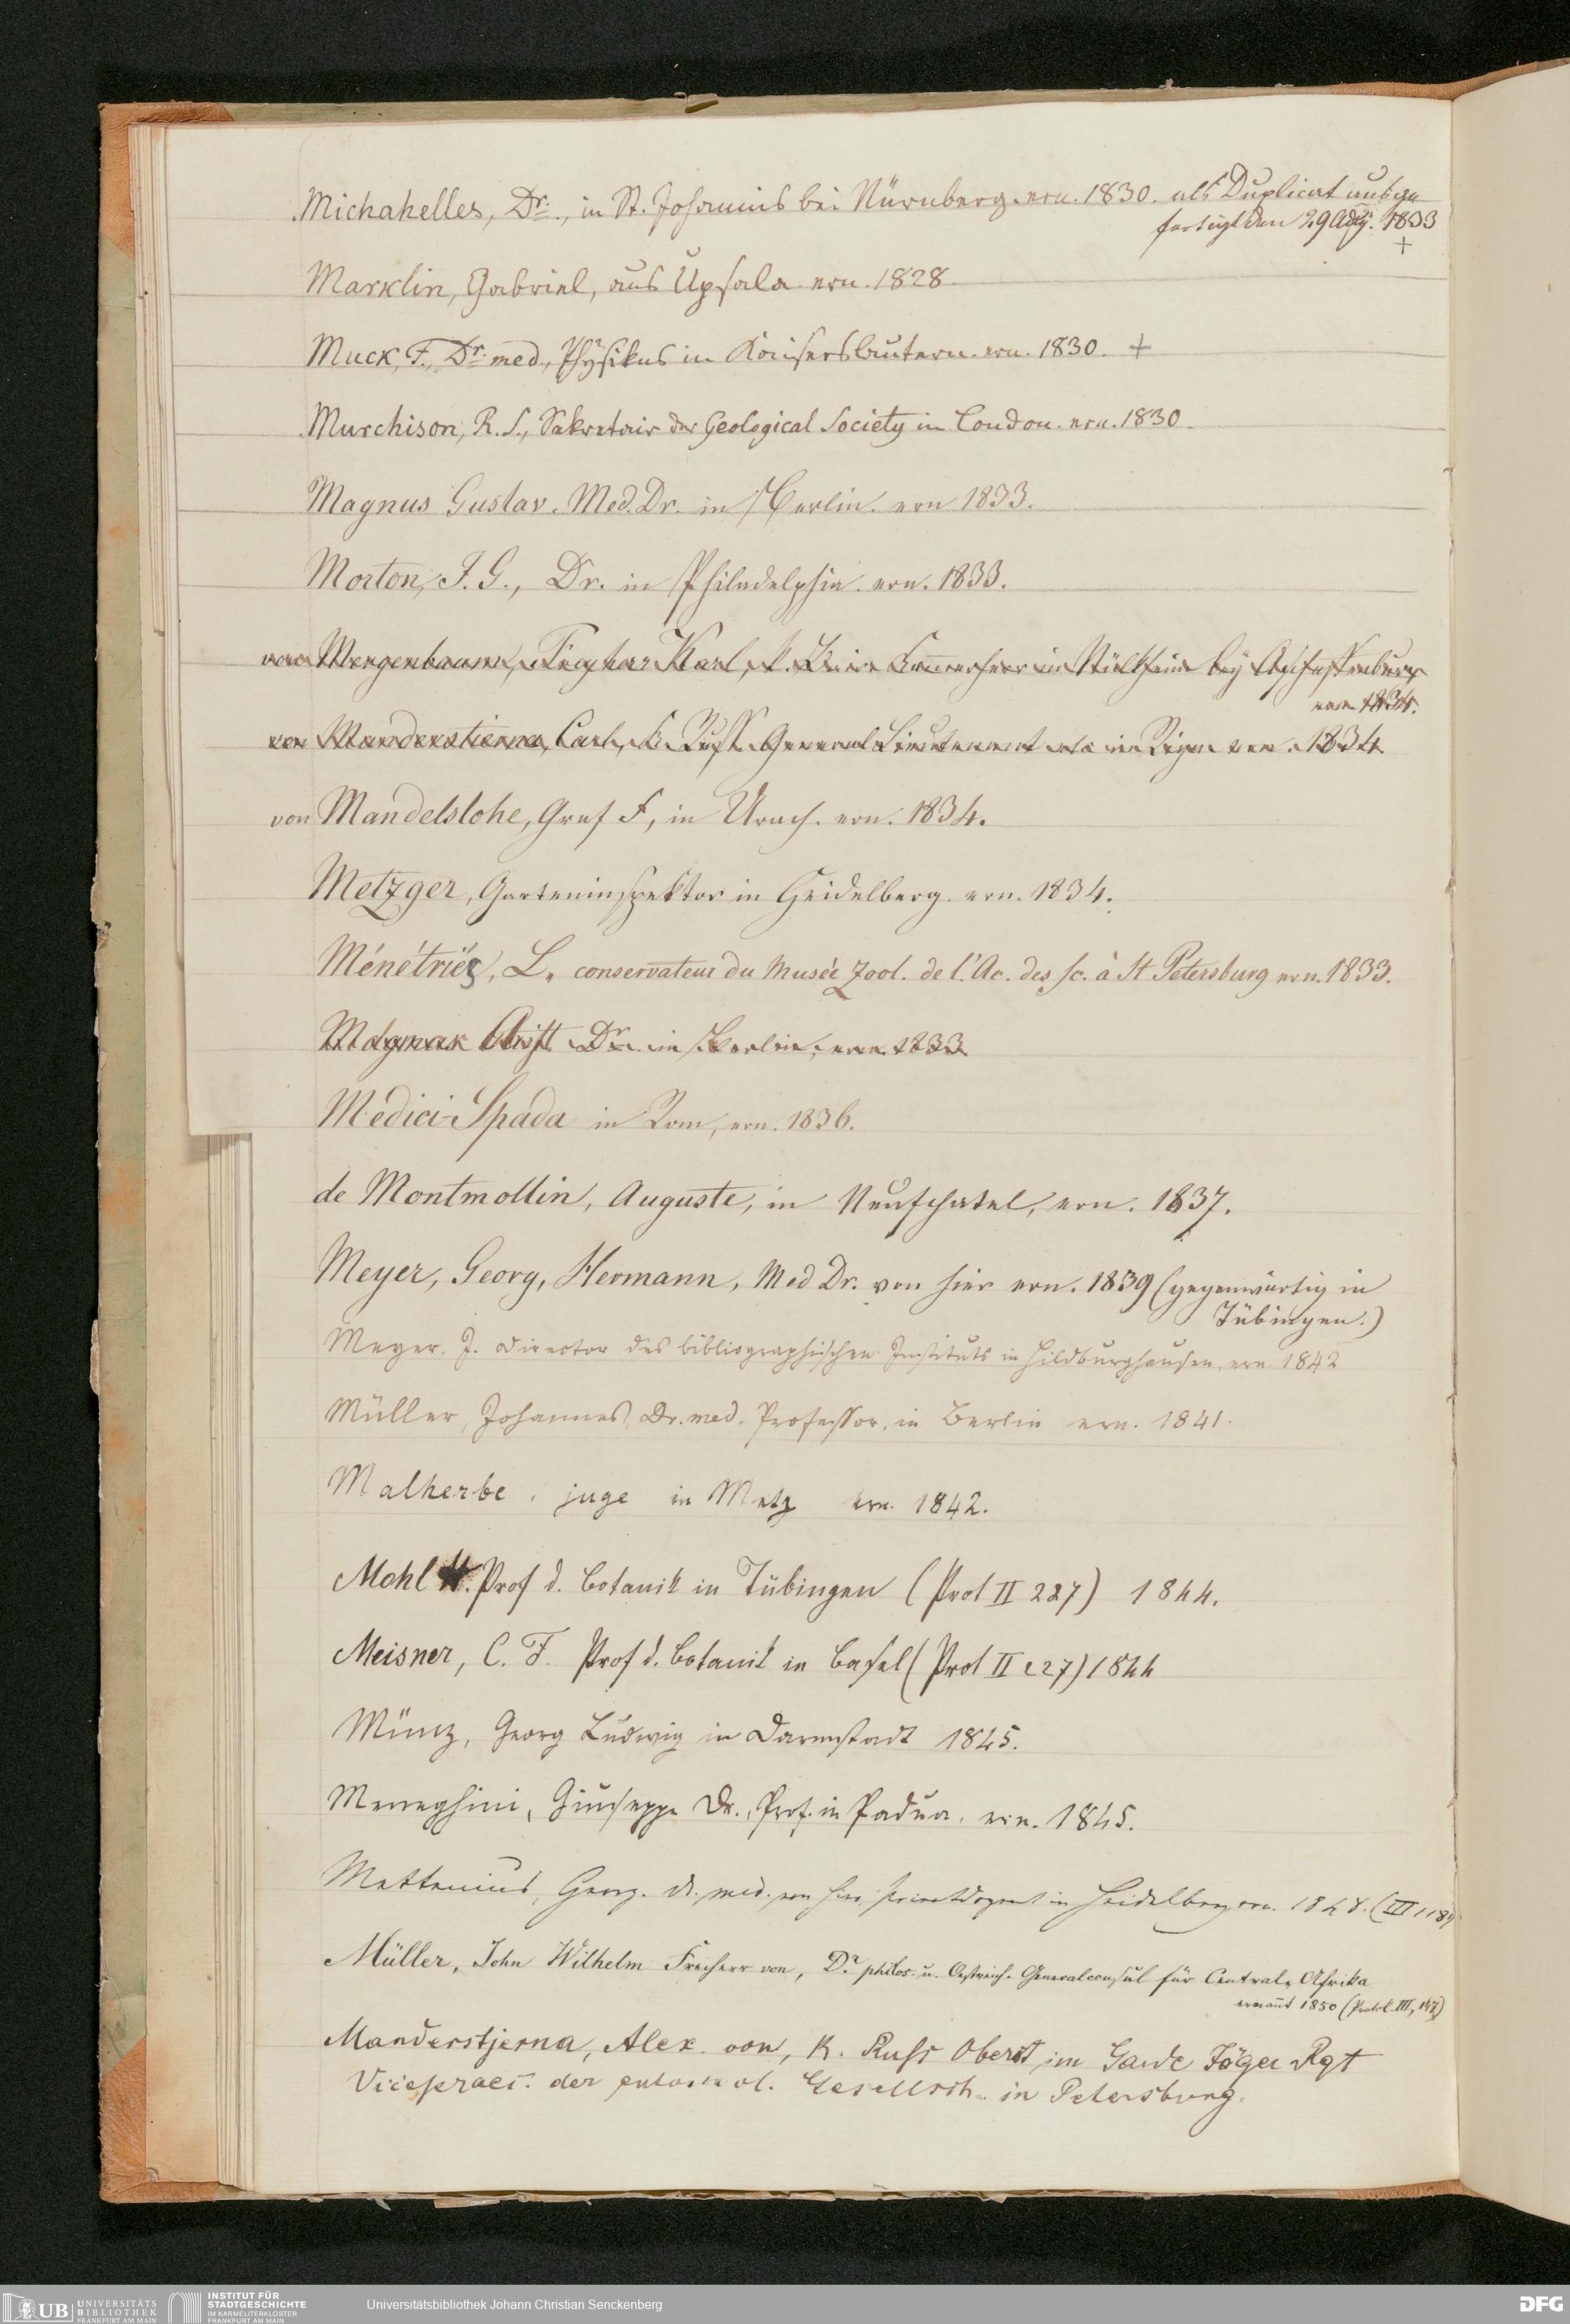 Michahelles, Dr., in St. Johannis bei Nürnberg. ern. 1830. als Duplicat ausge
fertigt den 29 Aug. 1833
+
Marklin, Gabriel, aus Upsala. ern. 1828.
Muck, F., Dr. med., Physikus in Kaiserslautern. ern. 1830. +
Murchison, R. S., Sekretair der Geological Society in London. ern. 1830.
Magnus Gustav. Med. Dr. in Berlin. ern 1833.
Morton, S. G., Dr. in Philadelphia. ern. 1833.
von Mergenbaum, Freyherr Karl, k. Kammerherr in Nilkheim bey Aschaffenburg
ern 1834.
von Manderstierna, Carl, K. Russ. General Lieutenant in Riga ern. 1834.
von Mandelslohe, Graf F, in Urach. ern. 1834.
Metzger, Garteninspektor in Heidelberg. ern. 1834.
Ménétriés, L. conservateur du Musée Zool. de l'Ac. des sc. à St Petersburg ern. 1833.
Dr. in Berlin, ern. 1833
Medici-Spada in Rom, ern. 1836.
de Montmollin, Auguste, in Neufchatel, ern. 1837.
Meyer, Georg, Hermann, Med Dr. von hier ern. 1839 (gegenwärtig in
Tübingen.)
Meyer, J. Director des bibliographischen Instituts in Hildburghausen, ern 1842
Müller, Johannes, Dr. med. Professor, in Berlin ern. 1841.
Malherbe, juge in Metz ern. 1842.
Mohl H. Prof d. Botanik in Tübingen (Prot II 227) 1844.
Meisner, C. F. Prof d. Botanik in Basel (Prot II 227) 1844
Münz, Georg Ludwig in Darmstadt 1845.
Meneghini, Giuseppe Dr., Prof. in Padua, ern. 1845.
Mettenius, Georg. Dr. med. von hier, Privatdozent in Heidelberg ern. 1848. (III 118)
Müller, John Wilhelm Freiherr von, Dr. philos. u. Oestreich. Generalconsul für Central-Afrika
ernannt 1850 (Protol. III, 147)
Manderstjerna, Alex. von, K. Russ Oberst im Garde Jäger Rgt
Vicepraes. der entomol. Gesellsch. in Petersburg.
UB UNIVERSITÄTS
BIBLIOTHEK
FRANKFURT AM MAIN
INSTITUT FÜR
STADTGESCHICHTE
IM KARMELITERKLOSTER
FRANKFURT AM MAIN
Universitätsbibliothek Johann Christian Senckenberg
DFG